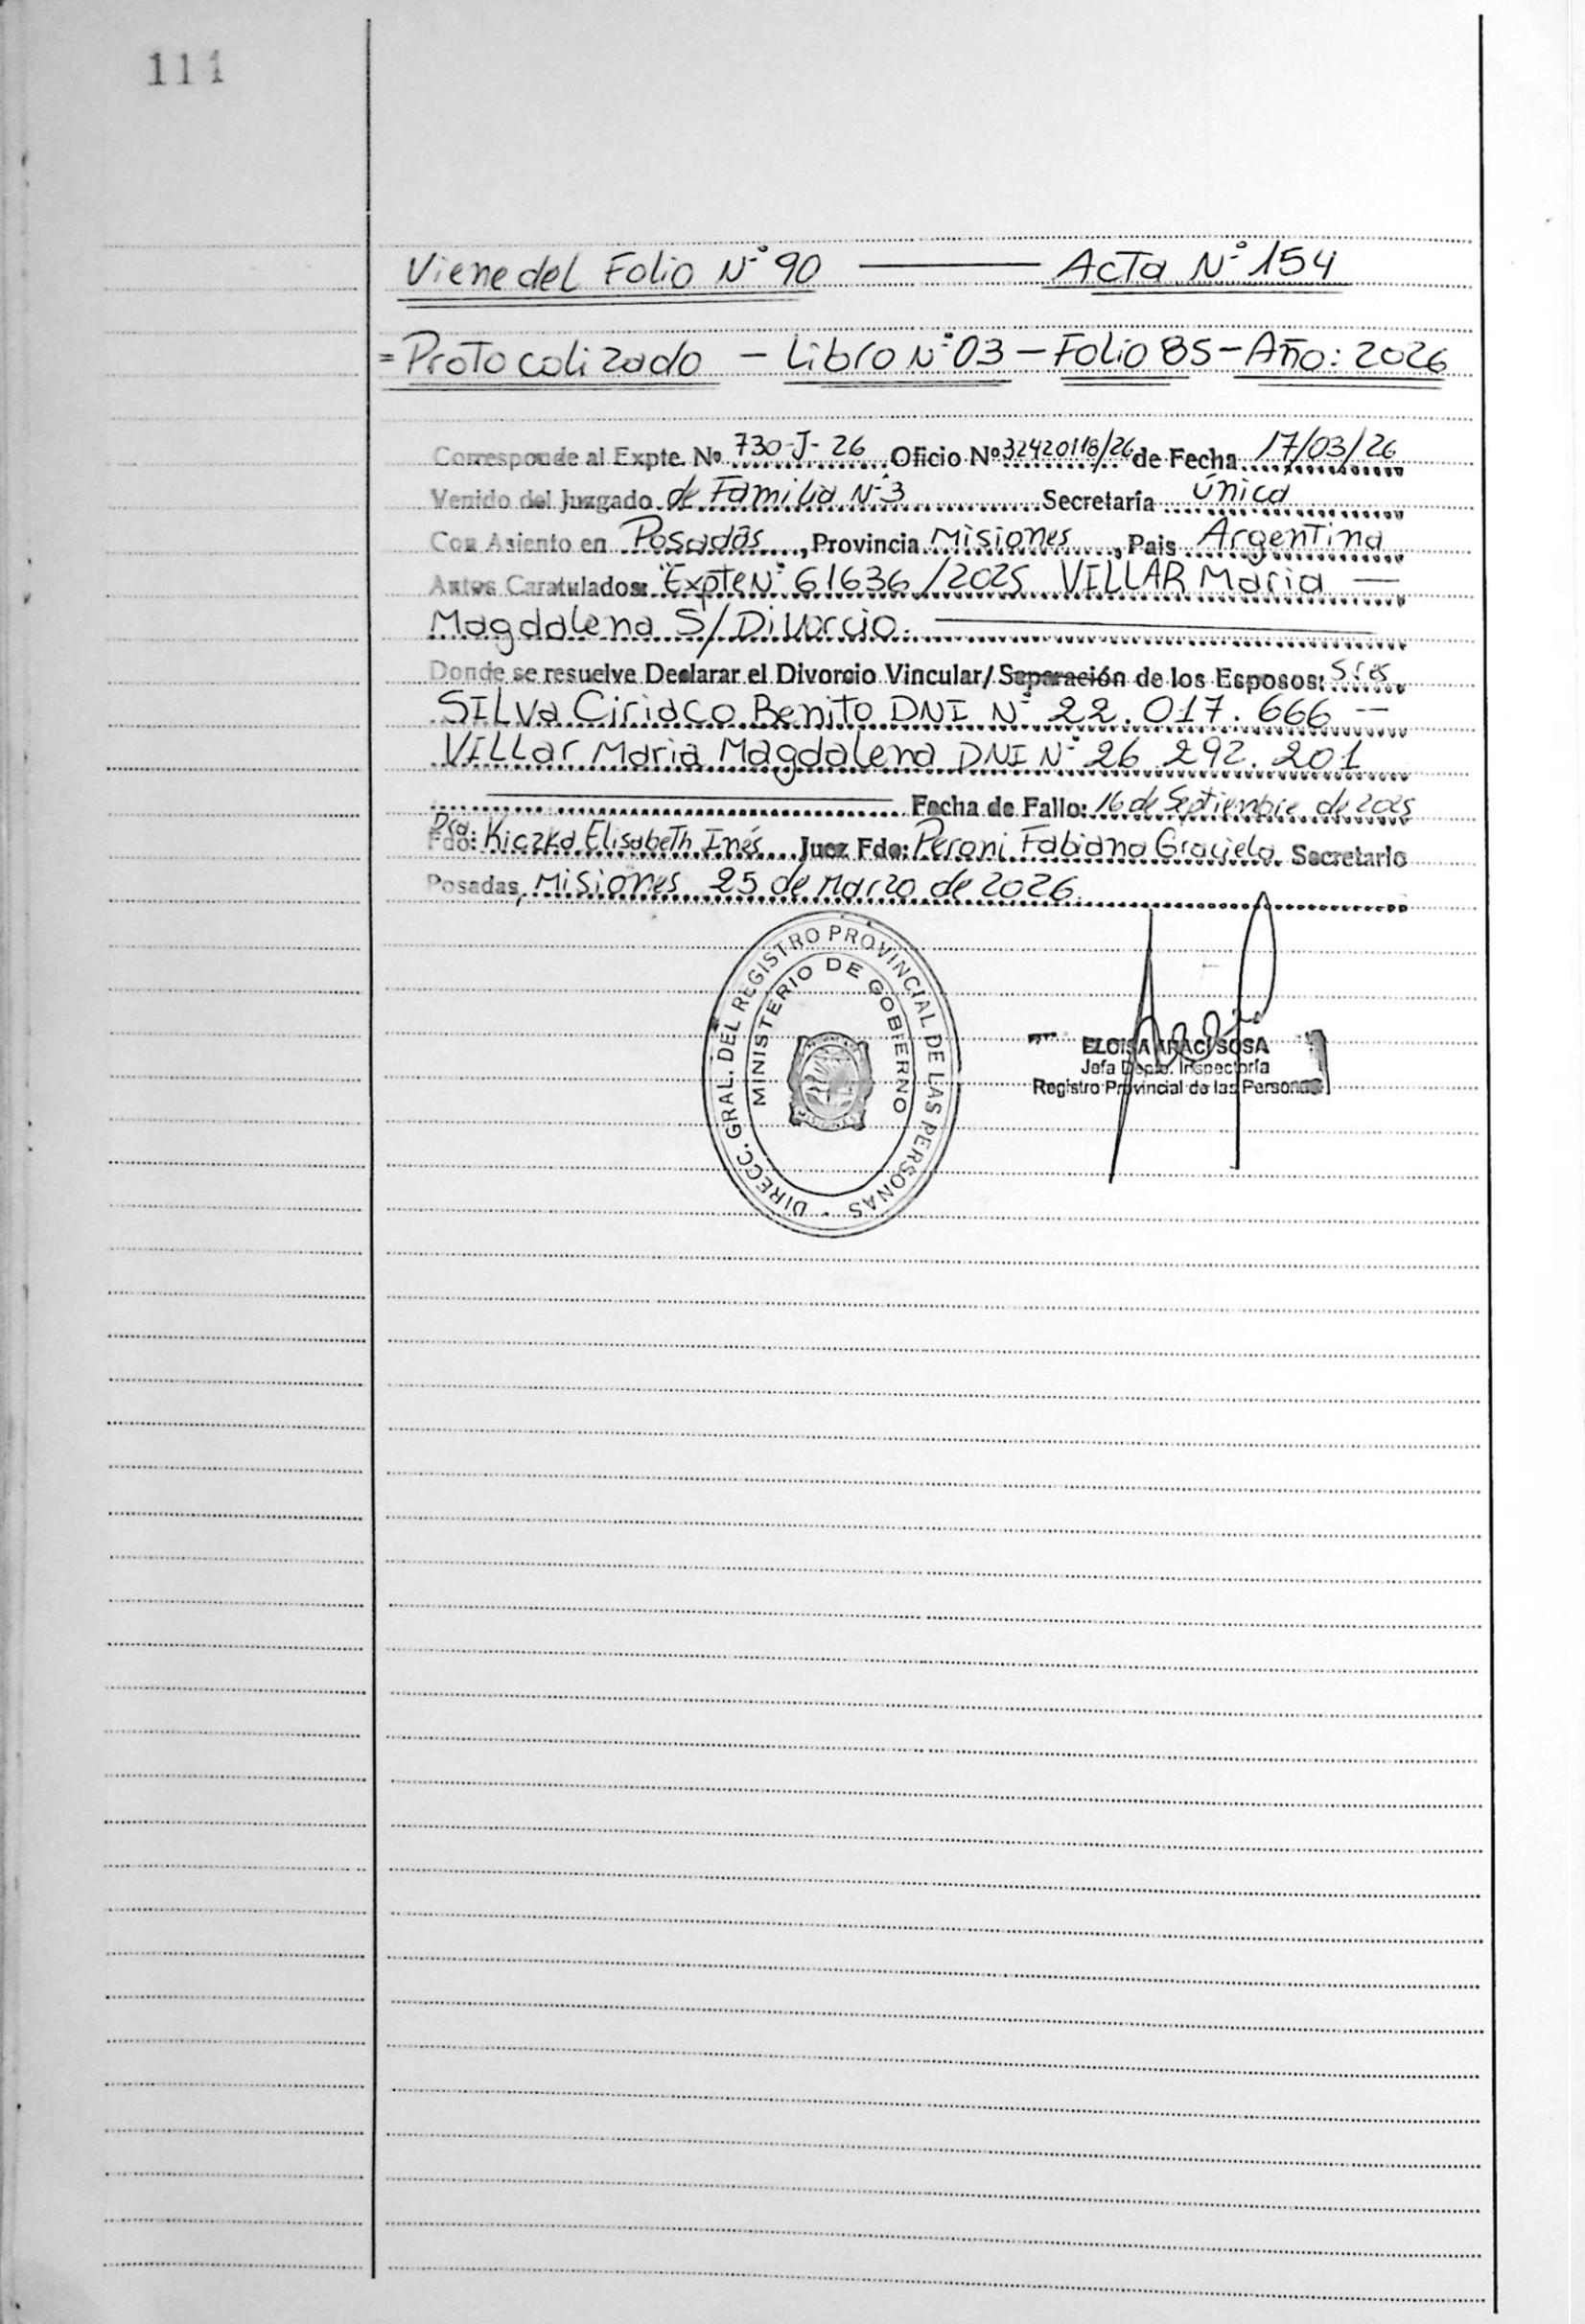 111
Viene del Folio N° 90 ——— Acta N° 154
= Protocolizado – Libro N° 03 – Folio 85 – Año: 2026
Corresponde al Expte. Nº 730-J-26 Oficio Nº 32420118/26 de Fecha 17/03/26
Venido del Juzgado de Familia N°3 Secretaría Única
Con Asiento en Posadas, Provincia Misiones, Pais Argentina
Autos Caratulados: "Expte N° 61636/2025 VILLAR Maria —
Magdalena S/Divorcio. ———
Donde se resuelve Declarar el Divorcio Vincular/ Separación de los Esposos: Sres
SILVa Ciriaco Benito DNI N° 22.017.666 —
VILLar Maria Magdalena DNI N° 26.292.201
——— Fecha de Fallo: 16 de Septiembre de 2025
Dra
Fdo: Kiczka Elisabeth Inés Juez Fdo: Peroni Fabiana Graciela Secretario
Posadas, Misiones 25 de Marzo de 2026.
DIRECC. GRAL. DEL REGISTRO PROVINCIAL DE LAS PERSONAS
MINISTERIO DE GOBIERNO
ELOISA ARACI SOSA
Jefa Depto. Inspectoría
Registro Provincial de las Personas